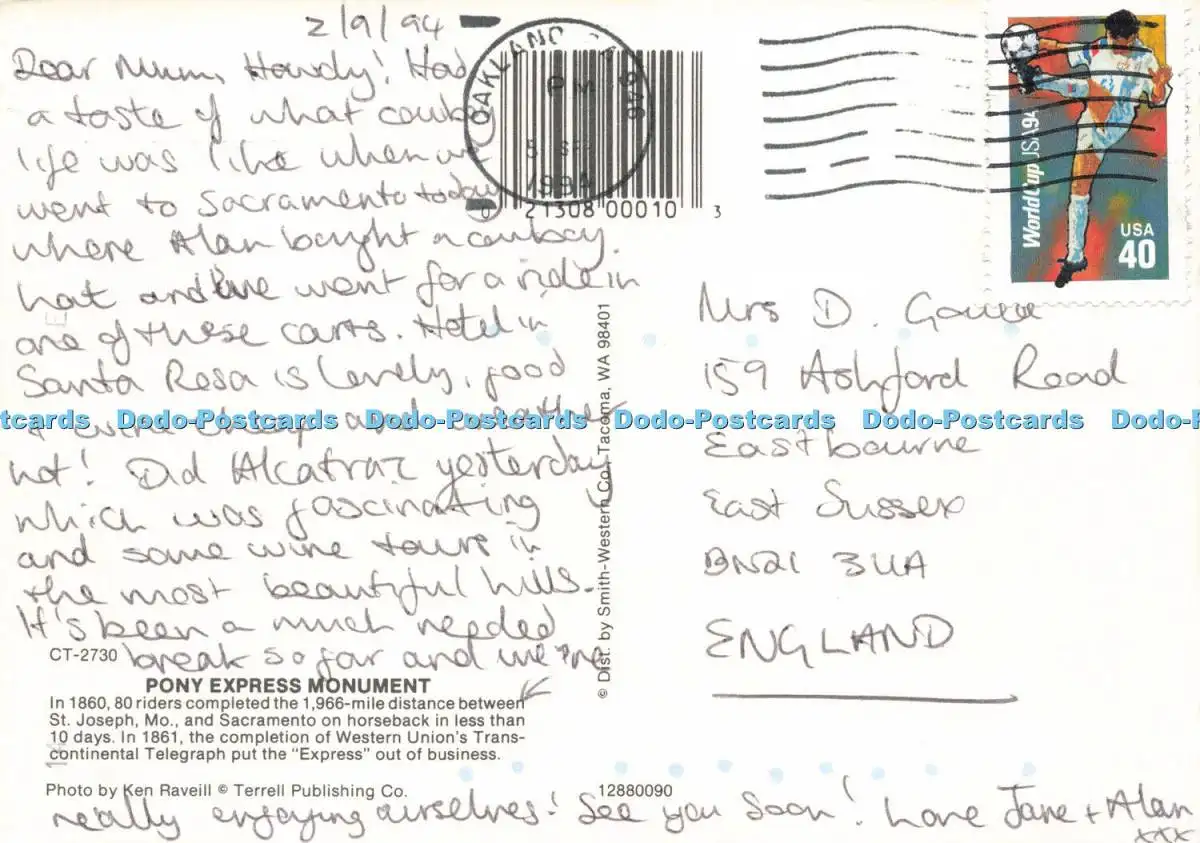 2/9/94
Dear Mum, Howdy! Had
a taste of what cowboy
life was like when we
went to Sacramento today
where Alan bought a cowboy
hat and we went for a ride in
one of these carts. Hotel in
Santa Rosa is lovely, good
+ extra cheap and weather
hot! Did Alcatraz yesterday
which was fascinating
and some wine tours in
the most beautiful hills.
It's been a much needed
break so far and we're
really enjoying ourselves! See you soon! Love Jane + Alan
xxx
CT-2730
PONY EXPRESS MONUMENT
In 1860, 80 riders completed the 1,966-mile distance between
St. Joseph, Mo., and Sacramento on horseback in less than
10 days. In 1861, the completion of Western Union's Trans-
continental Telegraph put the "Express" out of business.
Photo by Ken Raveill © Terrell Publishing Co.
12880090
© Dist. by Smith-Western Co., Tacoma, WA 98401
OAKLAND CA 946
PM
5 SEP
1994
0 21308 00010 3
World Cup USA 94
USA
40
Mrs D.
159 Ashford Road
Eastbourne
East Sussex
BN21 3UA
ENGLAND
Dodo-Postcards Dodo-Postcards Dodo-Postcards Dodo-Postcards